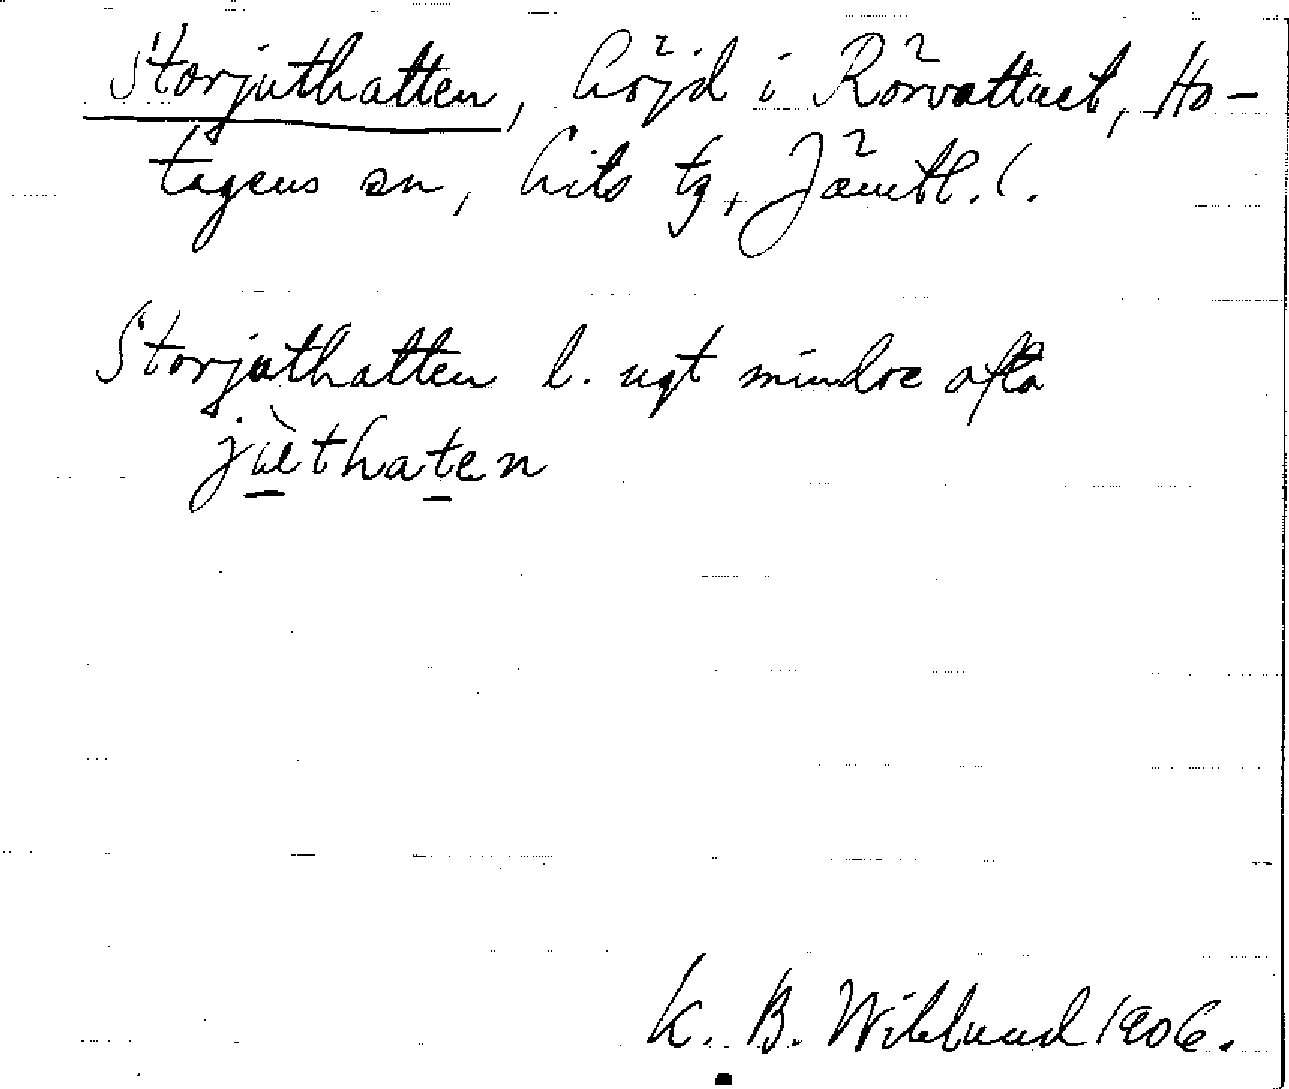 Storjuthatten, höjd i Rörvattnet, Ho-
tagens sn, Lits tg, Jämtl. l.
Storjuthatten l. ngt mindre ofta
jùthaten
K. B. Wiklund 1906.